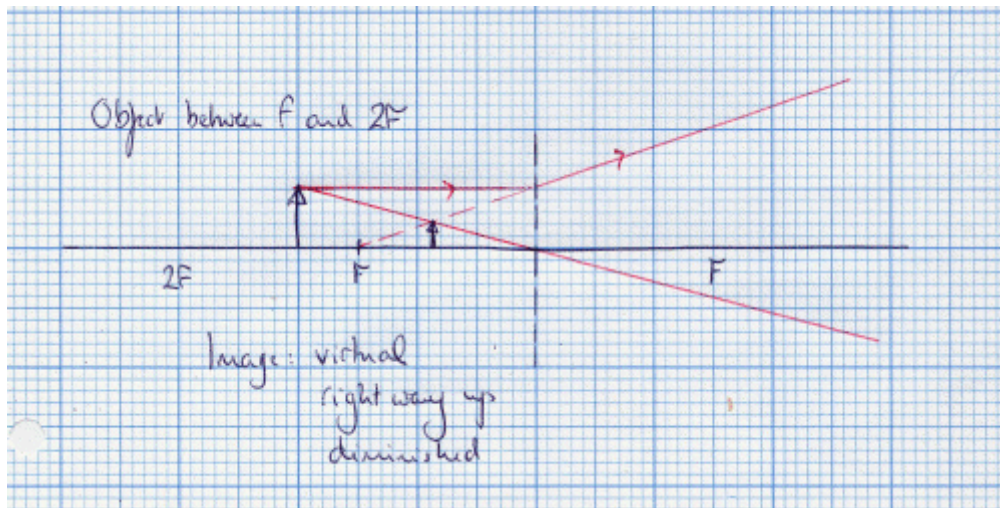 Object between F and 2F
2F F F
Image: virtual
right way up
diminished